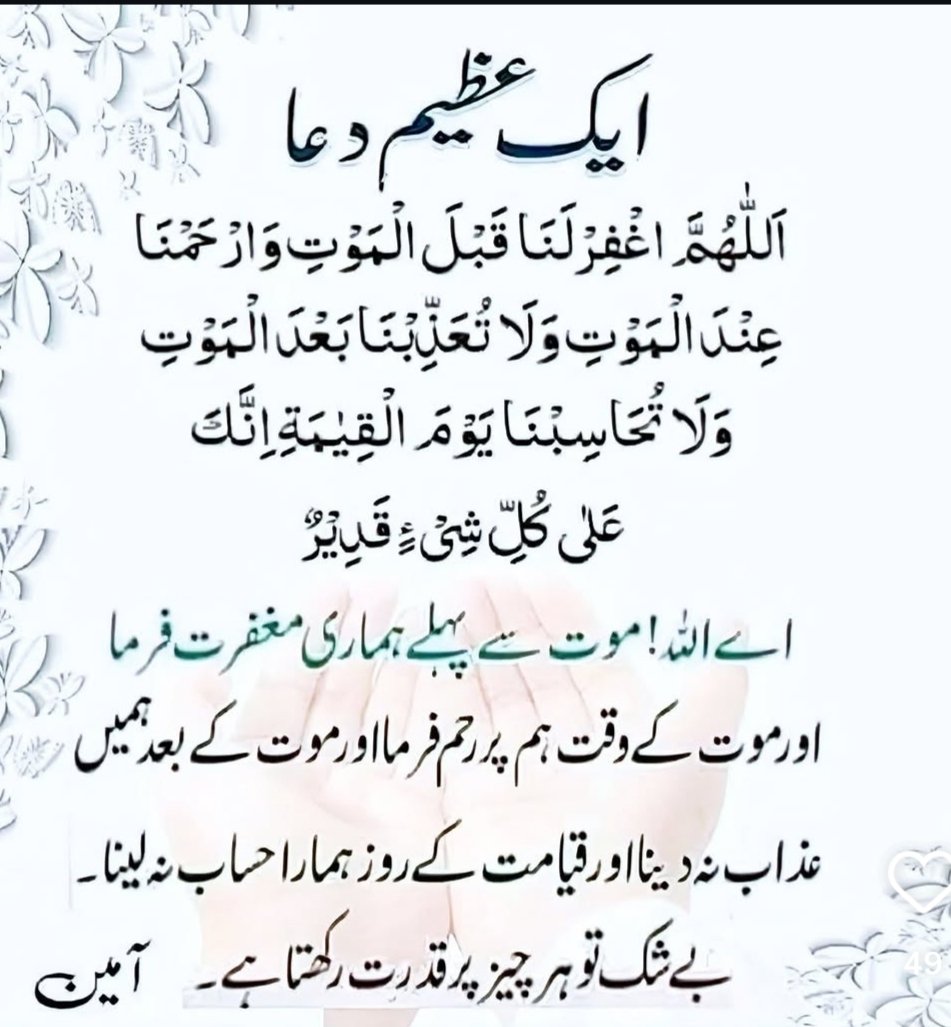 ایک عظیم دعا
اَللّٰهُمَّ اغْفِرْلَنَا قَبْلَ الْمَوْتِ وَارْحَمْنَا
عِنْدَ الْمَوْتِ وَلَا تُعَذِّبْنَا بَعْدَ الْمَوْتِ
وَلَا تُحَاسِبْنَا يَوْمَ الْقِيٰمَةِ اِنَّكَ
عَلٰى كُلِّ شِیْءٍ قَدِيْرٌ
اے اللہ! موت سے پہلے ہماری مغفرت فرما
اور موت کے وقت ہم پر رحم فرما اور موت کے بعد ہمیں
عذاب نہ دینا اور قیامت کے روز ہمارا حساب نہ لینا۔
بے شک تو ہر چیز پر قدرت رکھتا ہے۔ آمین